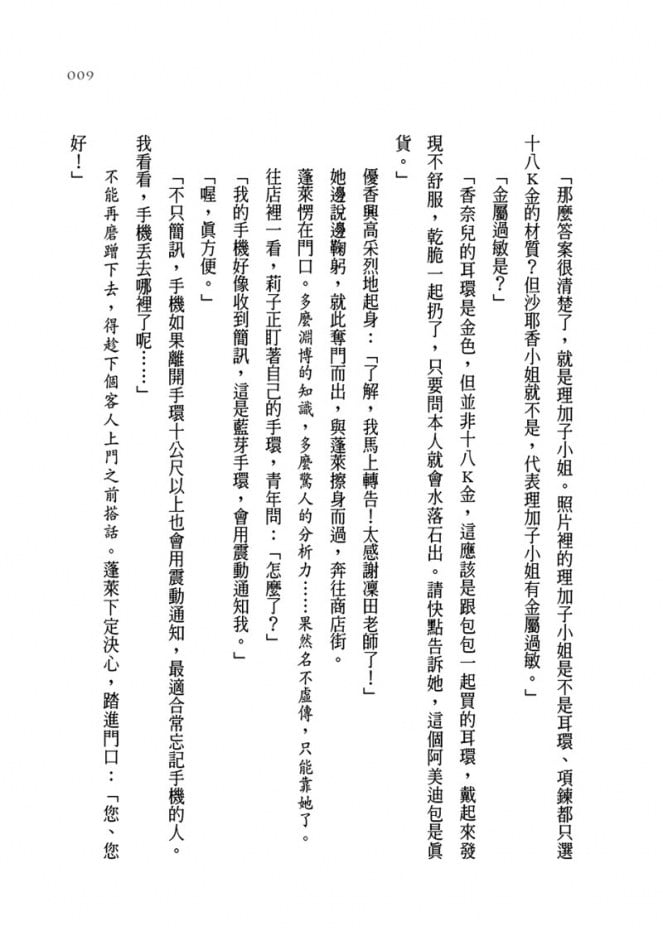 009
「那麼答案很清楚了，就是理加子小姐。照片裡的理加子小姐是不是耳環、項鍊都只選
十八K金的材質？但沙耶香小姐就不是，代表理加子小姐有金屬過敏。」
「金屬過敏是？」
「香奈兒的耳環是金色，但並非十八K金，這應該是跟包包一起買的耳環，戴起來發
現不舒服，乾脆一起扔了，只要問本人就會水落石出。請快點告訴她，這個阿美迪包是真
貨。」
優香興高采烈地起身：「了解，我馬上轉告！太感謝凜田老師了！」
她邊說邊鞠躬，就此奪門而出，與蓬萊擦身而過，奔往商店街。
蓬萊愣在門口。多麼淵博的知識，多麼驚人的分析力……果然名不虛傳，只能靠她了。
往店裡一看，莉子正盯著自己的手環，青年問：「怎麼了？」
「我的手機好像收到簡訊，這是藍芽手環，會用震動通知我。」
「喔，真方便。」
「不只簡訊，手機如果離開手環十公尺以上也會用震動通知，最適合常忘記手機的人。
我看看，手機丟去哪裡了呢……」
不能再磨蹭下去，得趁下個客人上門之前搭話。蓬萊下定決心，踏進門口：「您、您
好！」